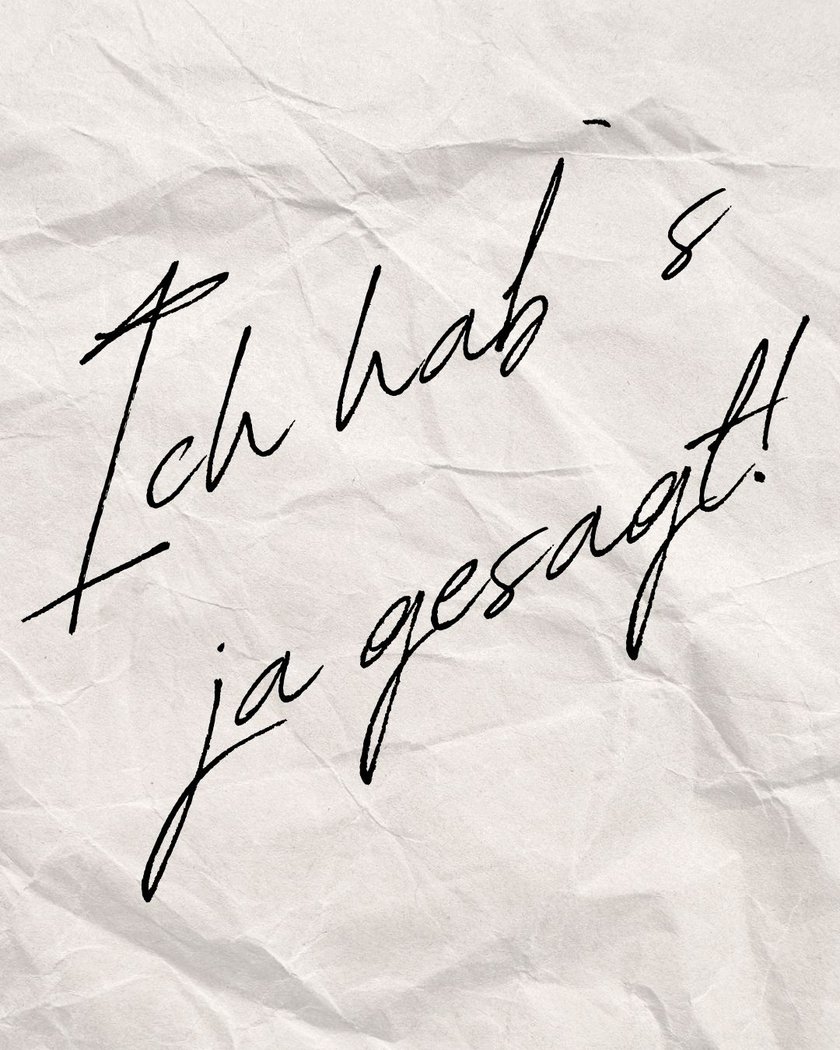 Ich hab`s
ja gesagt!